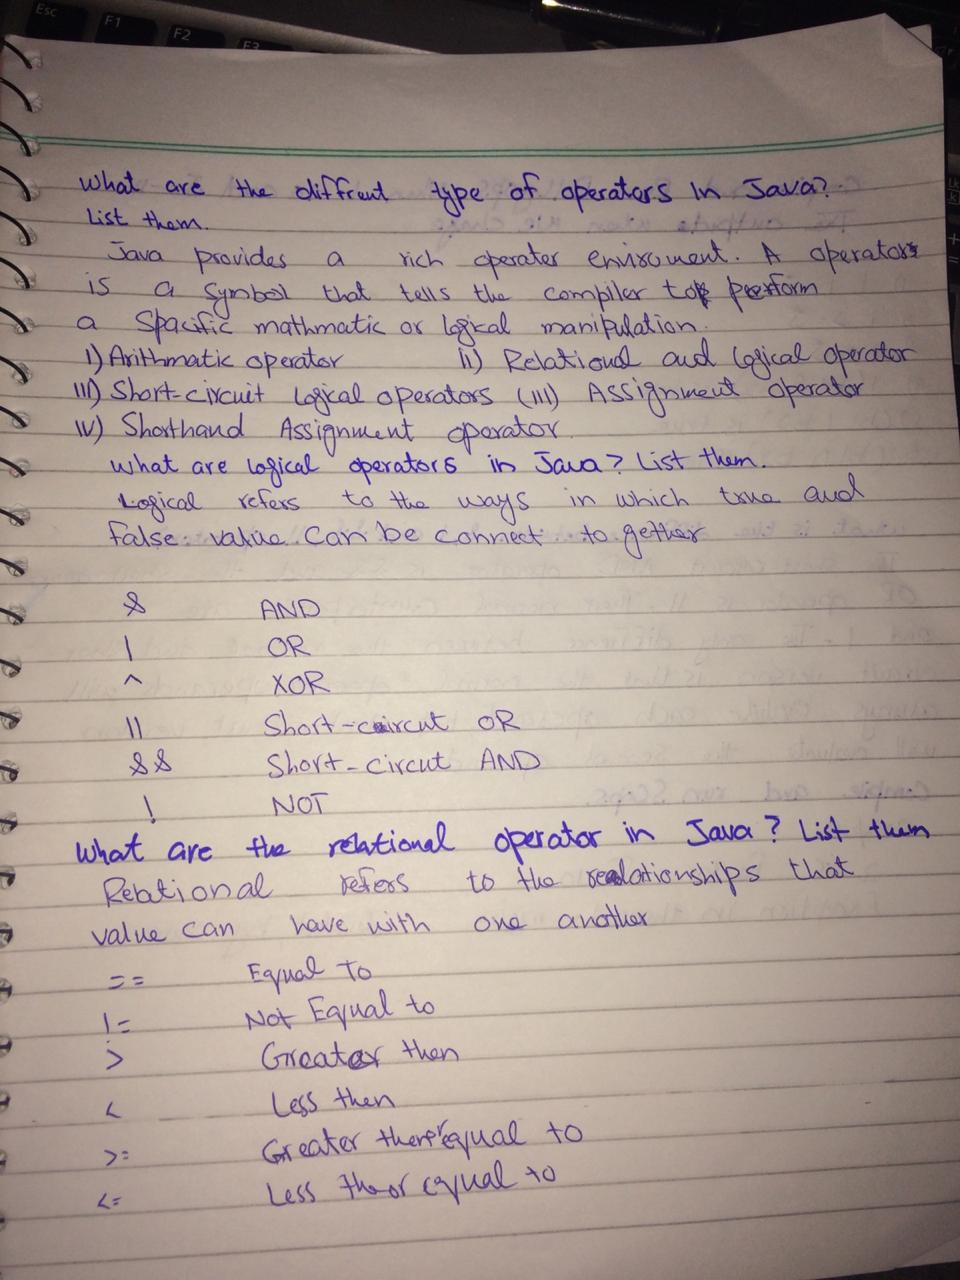 Esc
F1
F2
F3
What are the diffrent type of operators in Java?
List them.
Java provides a rich operater enviroment. A operators
is a symbol that tells the compiler to perform
a Spacific mathmatic or logical manipulation.
i) Arithmatic operator ii) Relational and logical operator
iii) Short-circuit logical operators (iii) Assignment operator
iv) Shorthand Assignment operator.
What are logical operators in Java? List them.
Logical refers to the ways in which true and
false value can be connect to gether
& AND
| OR
^ XOR
|| Short-circut OR
&& Short-circut AND
! NOT
What are the relational operator in Java? List them
Relational refers to the relationships that
value can have with one another
== Equal to
!= Not Equal to
> Greater then
< Less then
>= Greater then equal to
<= Less then or equal to